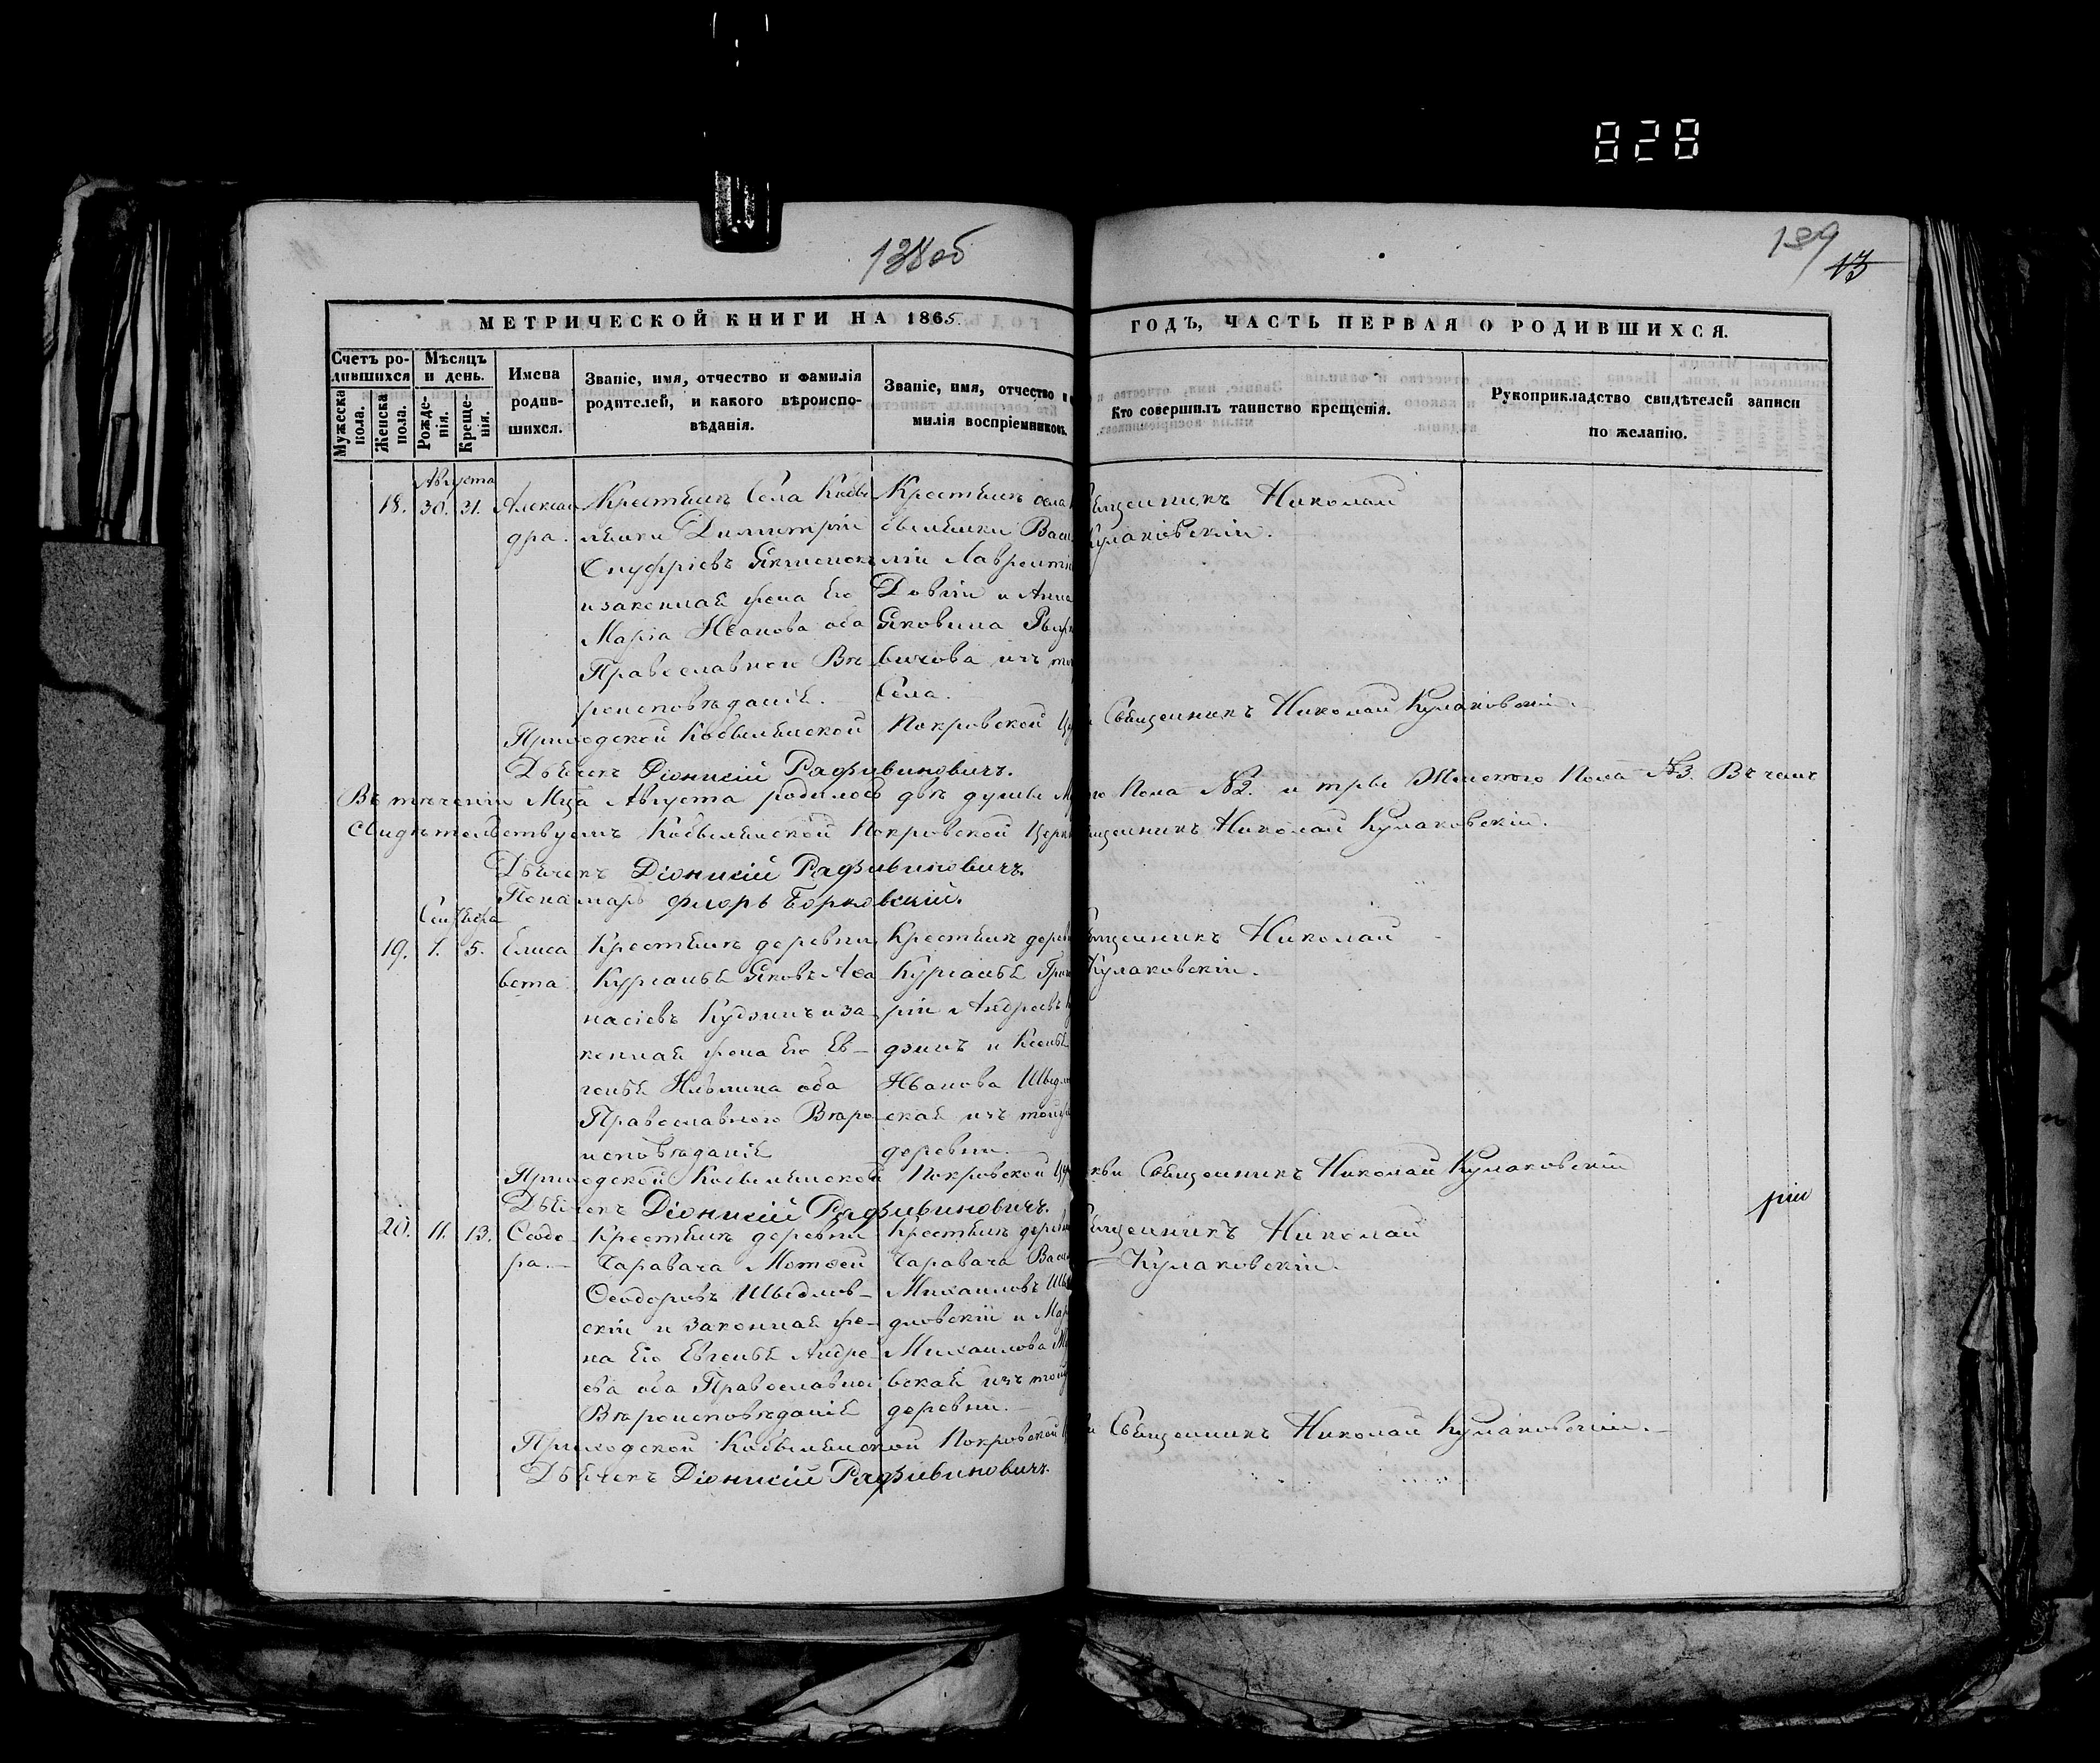 828
138об
139
13
МЕТРИЧЕСКОЙ КНИГИ НА 1865.
ГОДЪ, ЧАСТЬ ПЕРВАЯ О РОДИВШИХСЯ.
Счетъ родившихся
Мужеска пола.
Женска пола.
Мѣсяцъ и день.
Рожденія.
Крещенія.
Имена родившихся.
Званіе, имя, отчество и фамилія родителей, и какого вѣроисповѣданія.
Званіе, имя, отчество и
милія воспріемниковъ.
Кто совершилъ таинство крещенія.
Рукоприкладство свидѣтелей записи по желанію.
Августа
18. 30. 31. Алексан
дра.
Крестьянъ Села
Димитрій
Онуфріевъ
и законная жена его
Марія Иванова оба
Православнаго Вѣ
роисповѣданія.
Крестьянъ села
Васи
лій Лаврентіе
и Анна
Яковина
Села.
Священникъ Николай
Кулаковскій.
Приходской Кобылянской Покровской Священникъ Николай Кулаковскій.
Дьячекъ Діонисій Рафивиновичъ.
Въ теченіи Мца Августа родилось двѣ души Пола №2. и три Женского Пола №3. Въ чемъ
Свидѣтельствуемъ Кобылянской Покровской Церкви Священникъ Николай Кулаковскій.
Дьячекъ Діонисій Рафивиновичъ.
Понамарь Флоръ Борковскій.
Сентября
19. 1. 5. Елиса
вета.
Крестьянъ деревни
Курганья Яковъ Афа
насіевъ Кудзинъ и за
конная жена его Ев
генья Ильина оба
Православного Вѣро
исповѣданія
Крестьянъ дерев
Курганья Григо
рій Андреевъ Ку
дзинъ и Ксенья
Иванова Швыдло
ская изъ тойже
деревни.
Священникъ Николай
Кулаковскій.
Приходской Кобылянской Покровской Церкви Священникъ Николай Кулаковскій
Дьячекъ Діонисій Рафивиновичъ.
рiи
20. 11. 13. Феодо
ра.
Крестьянъ деревни
Чаравача Матвей
Феодоровъ Швыдлов
скій и законная же
на его Евгенья Андре
ева оба Православно
Вѣроисповѣданія
Крестьянъ деревни
Чаравача Васи
Михаиловъ Швы
дловскій и Мар
Михаилова
вская изъ тойже
деревни.
Священникъ Николай
Кулаковскій.
Приходской Кобылянской Покровской Священникъ Николай Кулаковскій.
Дьячекъ Діонисій Рафивиновичъ.